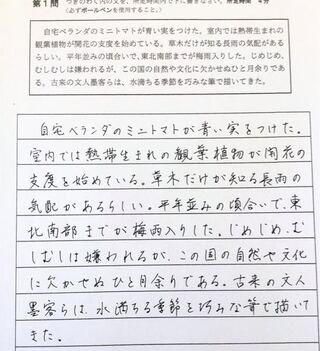 第1問 つぎのわく内の文を、所定時間内で下に書きなさい。所定時間 4分
(必ずボールペンを使用すること。)
自宅ベランダのミニトマトが青い実をつけた。室内では熱帯生まれの
観葉植物が開花の支度を始めている。草木だけが知る長雨の気配がある
らしい。平年並みの頃合いで、東北南部までが梅雨入りした。じめじめ、
むしむしは嫌われるが、この国の自然や文化に欠かせぬひと月余りであ
る。古来の文人墨客らは、水満ちる季節を巧みな筆で描いてきた。
自宅ベランダのミニトマトが青い実をつけた。
室内では熱帯生まれの観葉植物が開花の
支度を始めている。草木だけが知る長雨の
気配があるらしい。平年並みの頃合いで、東
北南部までが梅雨入りした。じめじめ、む
しむしは嫌われるが、この国の自然や文化
に欠かせぬひと月余りである。古来の文人
墨客らは、水満ちる季節を巧みな筆で描いて
きた。